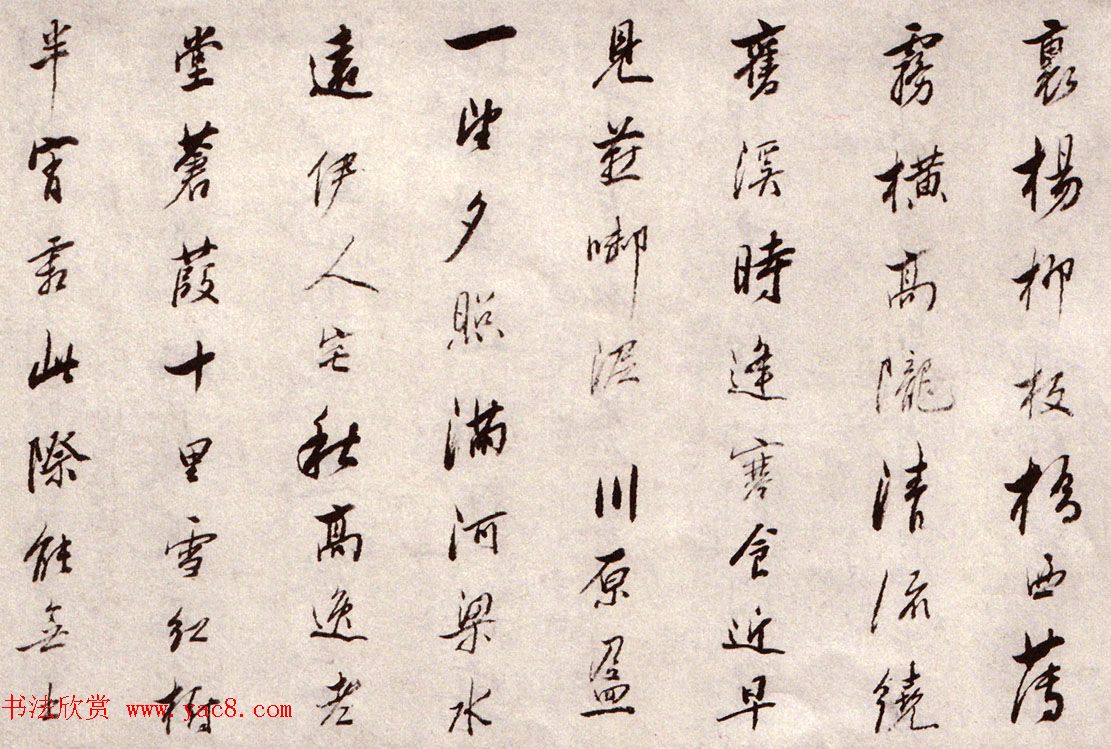 裏楊柳枝橋西薄
霧橫高隴清流繞
舊溪時逢寒食近早
見燕啣泥川原盈
一望夕照滿河梁水
遠伊人宅秋高逸老
堂蒼葭十里雪紅樹
半宵霜此際能無
书法欣赏 www.yac8.com